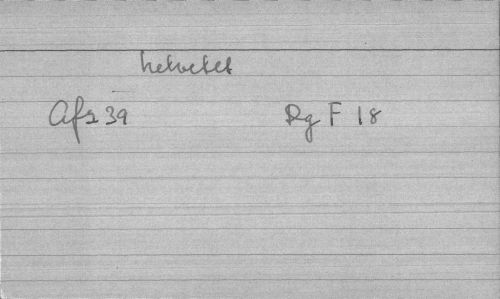 helvelet
Afr 39 Rg F 18